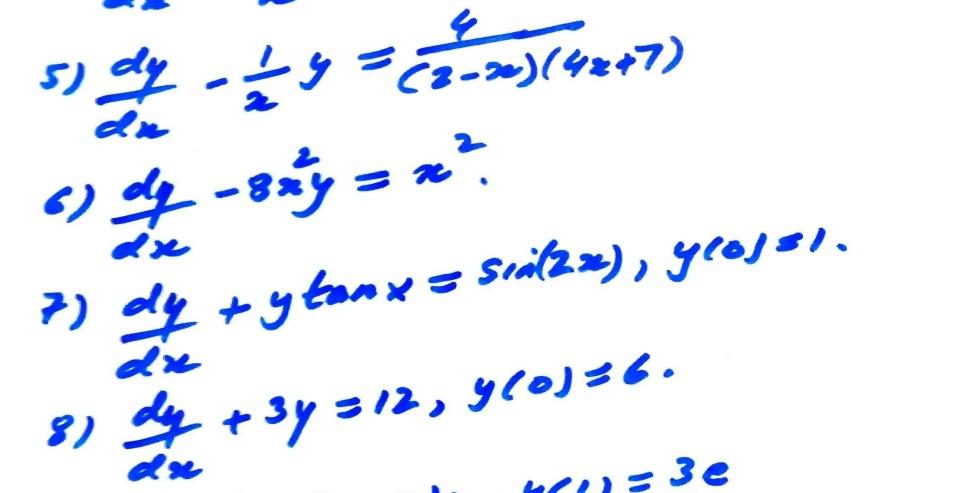 5) dy/dx - 1/x y = 4/((2-x)(4x+7))
6) dy/dx - 8x²y = x².
7) dy/dx + y tan x = sin(2x), y(0)=1.
8) dy/dx + 3y = 12, y(0)=6.
y(1) = 3e